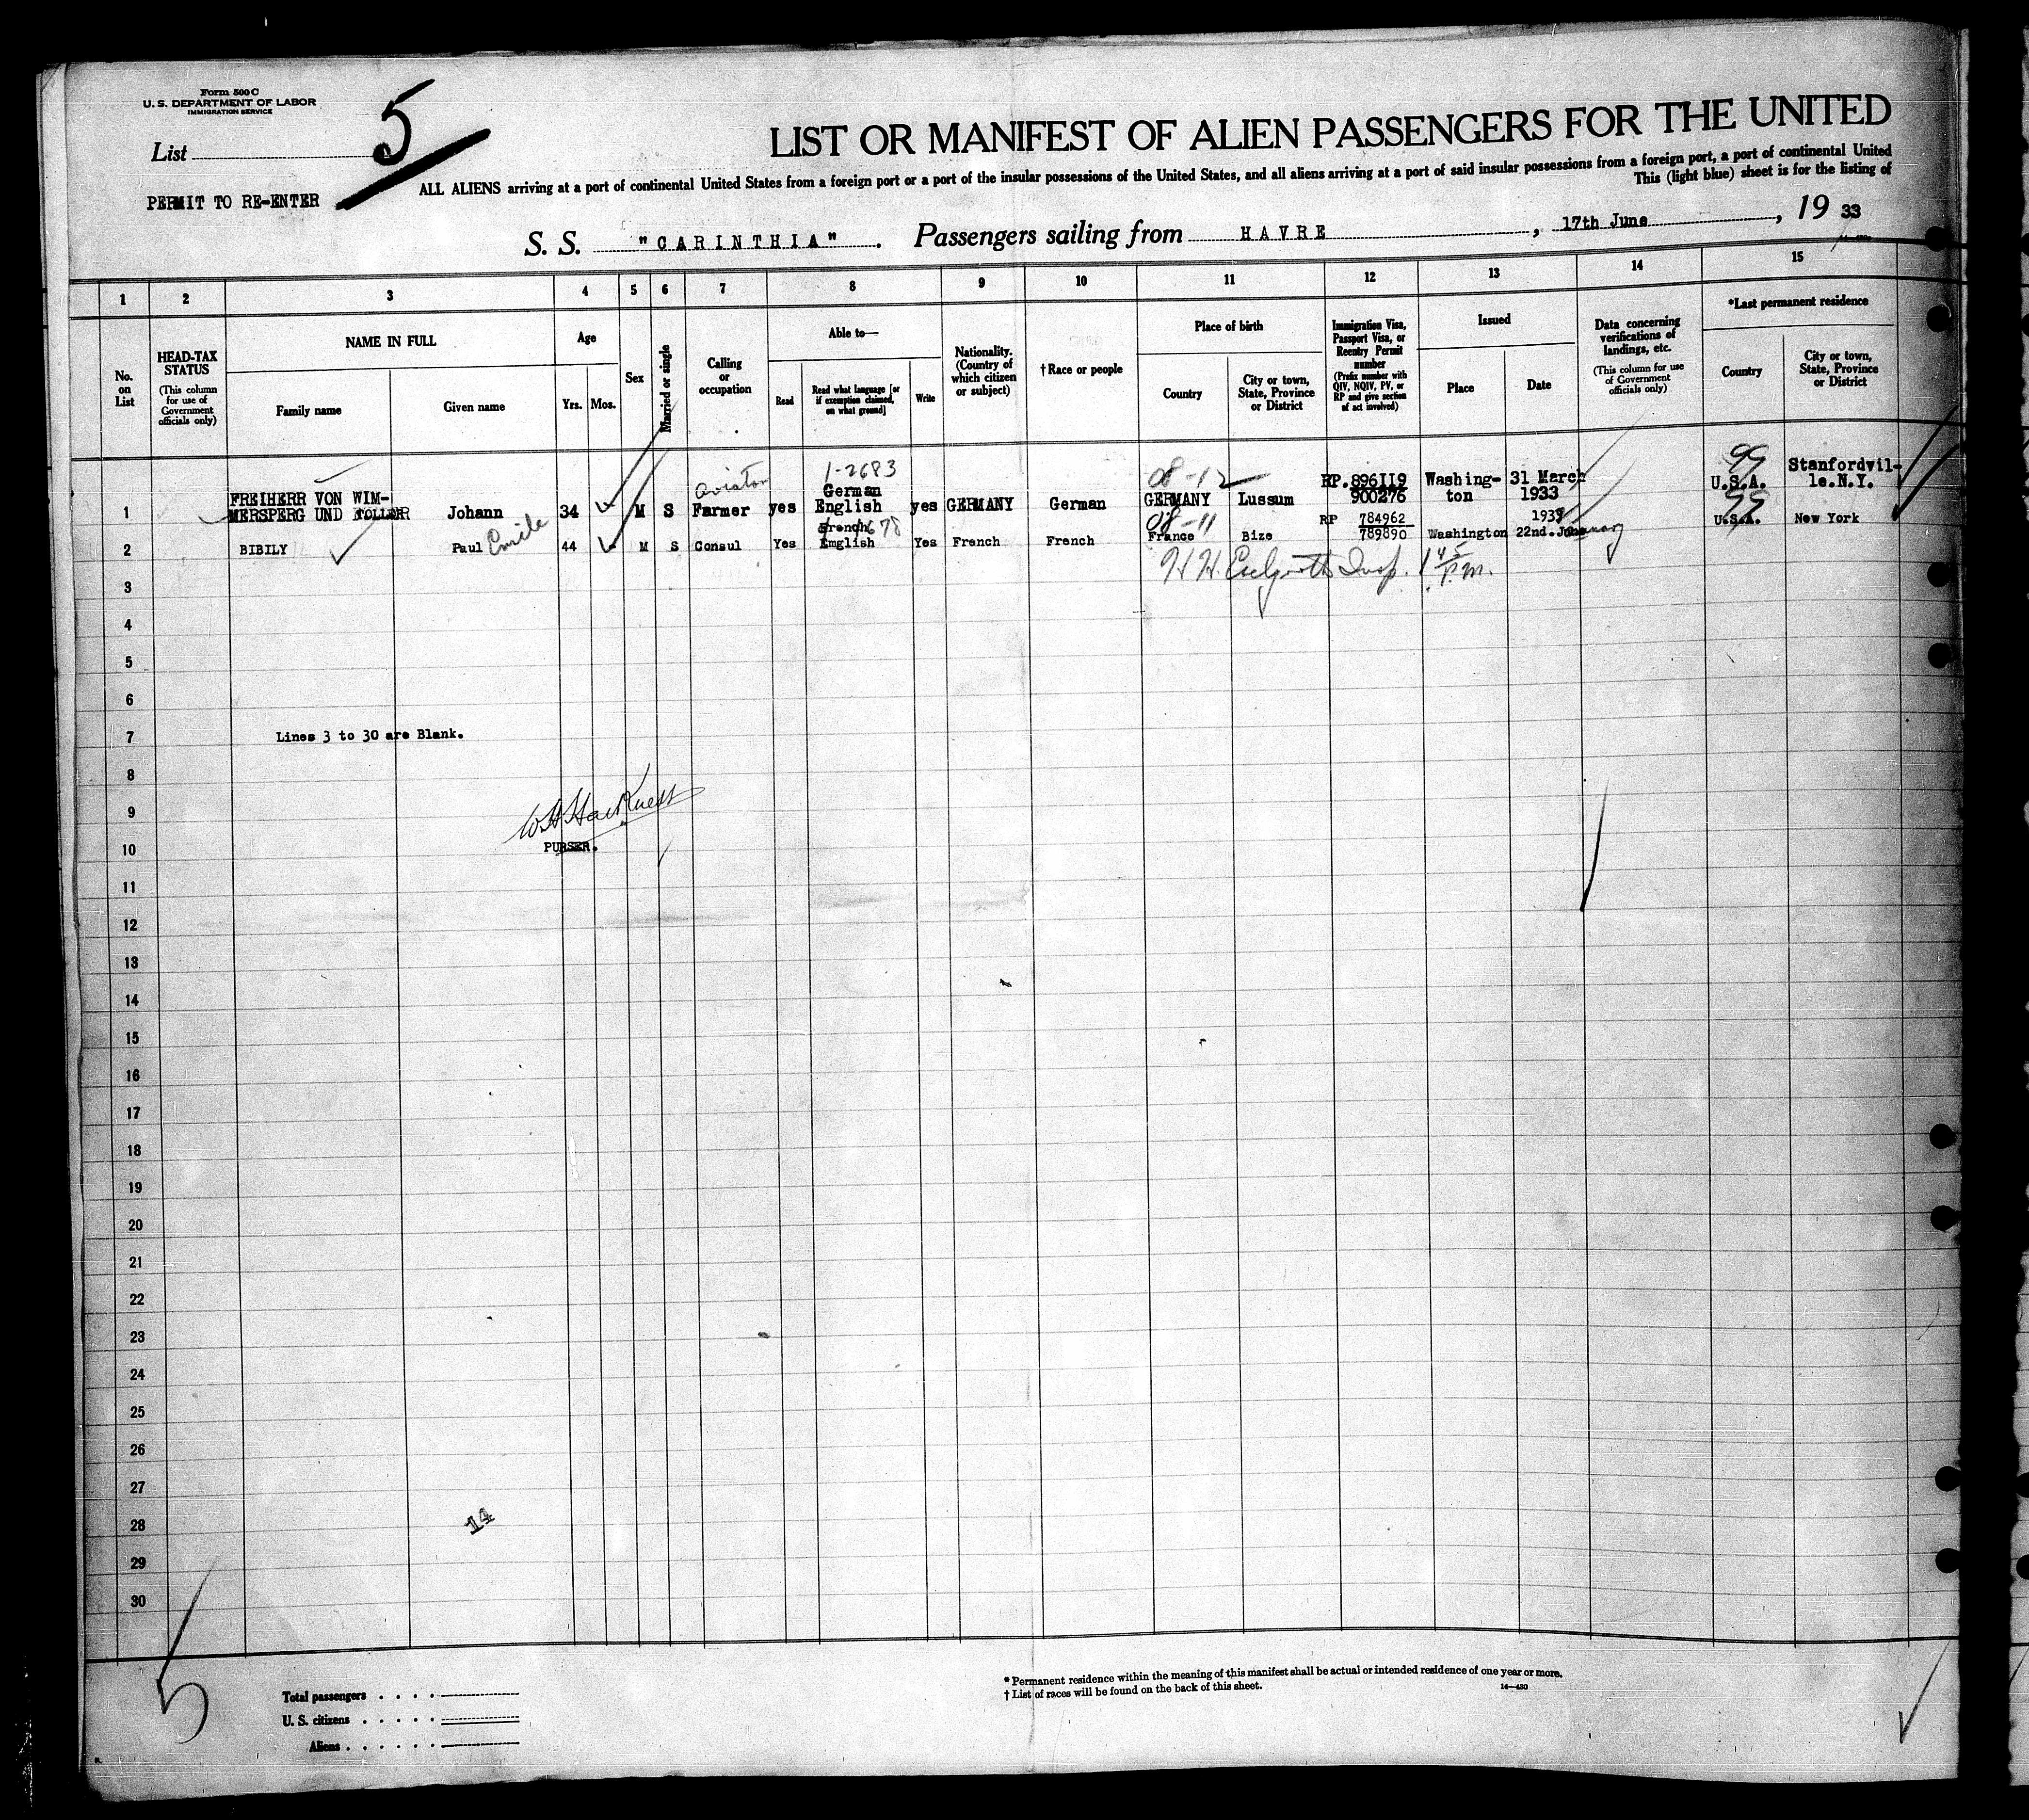 Form 500 C
U. S. DEPARTMENT OF LABOR
IMMIGRATION SERVICE
List 5
PERMIT TO RE-ENTER
LIST OR MANIFEST OF ALIEN PASSENGERS FOR THE UNITED
ALL ALIENS arriving at a port of continental United States from a foreign port or a port of the insular possessions of the United States, and all aliens arriving at a port of said insular possessions from a foreign port, a port of continental United
This (light blue) sheet is for the listing of
S. S. "CARINTHIA". Passengers sailing from HAVRE, 17th June, 19 33
1 2 3 4 5 6 7 8 9 10 11 12 13 14 15
No. on List
HEAD-TAX STATUS (This column for use of Government officials only)
NAME IN FULL
Family name
Given name
Age
Yrs. Mos.
Sex
Married or single
Calling or occupation
Able to—
Read
Read what language [or if exemption claimed, on what ground]
Write
Nationality. (Country of which citizen or subject)
†Race or people
Place of birth
Country
City or town, State, Province or District
Immigration Visa, Passport Visa, or Reentry Permit number (Prefix number with QIV, NQIV, PV, or RP and give section of act involved)
Issued
Place
Date
Data concerning verifications of landings, etc. (This column for use of Government officials only)
*Last permanent residence
Country
City or town, State, Province or District
aviator 1-2683 08-12 99
1 FREIHERR VON WIMMERSPERG UND TOLLER Johann 34 M S Farmer yes German English yes GERMANY German GERMANY Lussum RP.896119 900276 Washington 31 March 1933 U.S.A. Stanfordville.N.Y.
08-11 99
2 BIBILY Paul Emile 44 M S Consul Yes French English Yes French French France Bize RP 784962 789890 Washington 22nd. January U.S.A. New York
H.H. Insp. 1 45 P.M.
3
4
5
6
7 Lines 3 to 30 are Blank.
8
9
10 PURSER.
11
12
13
14
15
16
17
18
19
20
21
22
23
24
25
26
27
28 14
29
30
5
Total passengers . . . .
U. S. citizens . . . . .
Aliens . . . . . .
* Permanent residence within the meaning of this manifest shall be actual or intended residence of one year or more.
† List of races will be found on the back of this sheet.
14—430